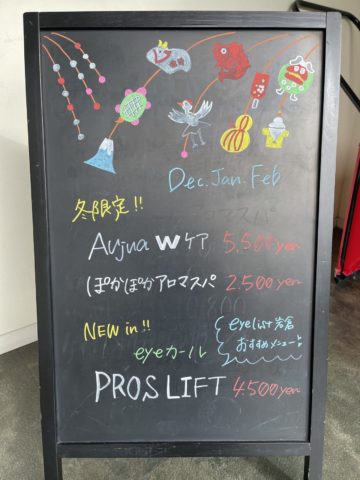 Dec. Jan. Feb
冬限定!!
Aujua Wケア 5.500yen
ぽかぽかアロマスパ 2.500yen
NEW in!!
eyelist岩倉
おすすめメニュー
eyeカール
PROS LIFT 4.500yen